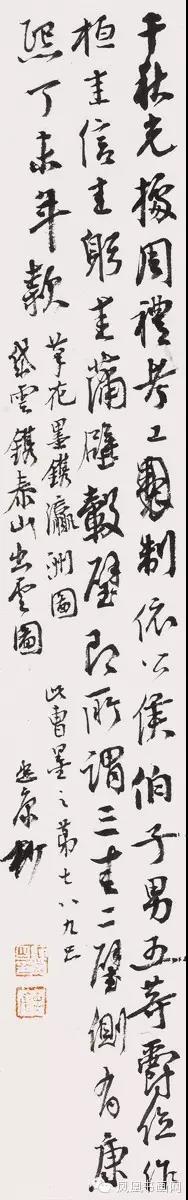 千秋光據周禮考工製制依公侯伯子男五等爵位作
桓圭信圭躬圭蒲璧穀璧即所謂三圭二璧側有康
熙丁未年款
草花墨鐫瀛洲圖
岱雲鐫泰山出雲圖
此曹墨之第七八九笏
凤凰书画网